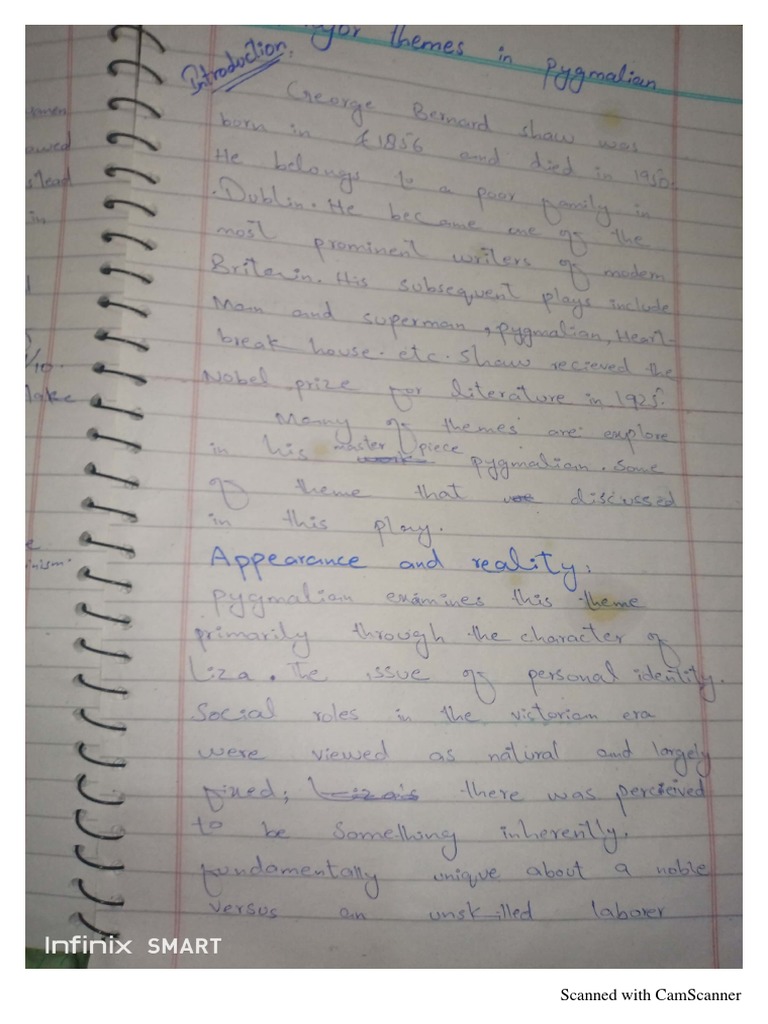 major themes in pygmalian
Introduction.
George Bernard shaw was
born in 1856 and died in 1950.
He belongs to a poor family in
Dublin. He became one of the
most prominent writers of modern
Tritewin. His subsequent plays include
Man and superman, pygmalian, Heart-
break house. etc. Shaw recieved the
Nobel prize for literature in 1925.
Many of themes are explore
in his master piece pygmalian. Some
of theme that discussed
in this play.
Appearance and reality:
pygmalian examines this theme
primarily through the character of
Liza. The issue of personal identity.
Social roles in the victorian era
were viewed as natural and largely
fixed; there was percieved
to be something inherently.
fundamentally unique about a noble
versus an unskilled laborer
umen
owed
stead
in
1/10.
lake
e
inism.
Infinix SMART
Scanned with CamScanner